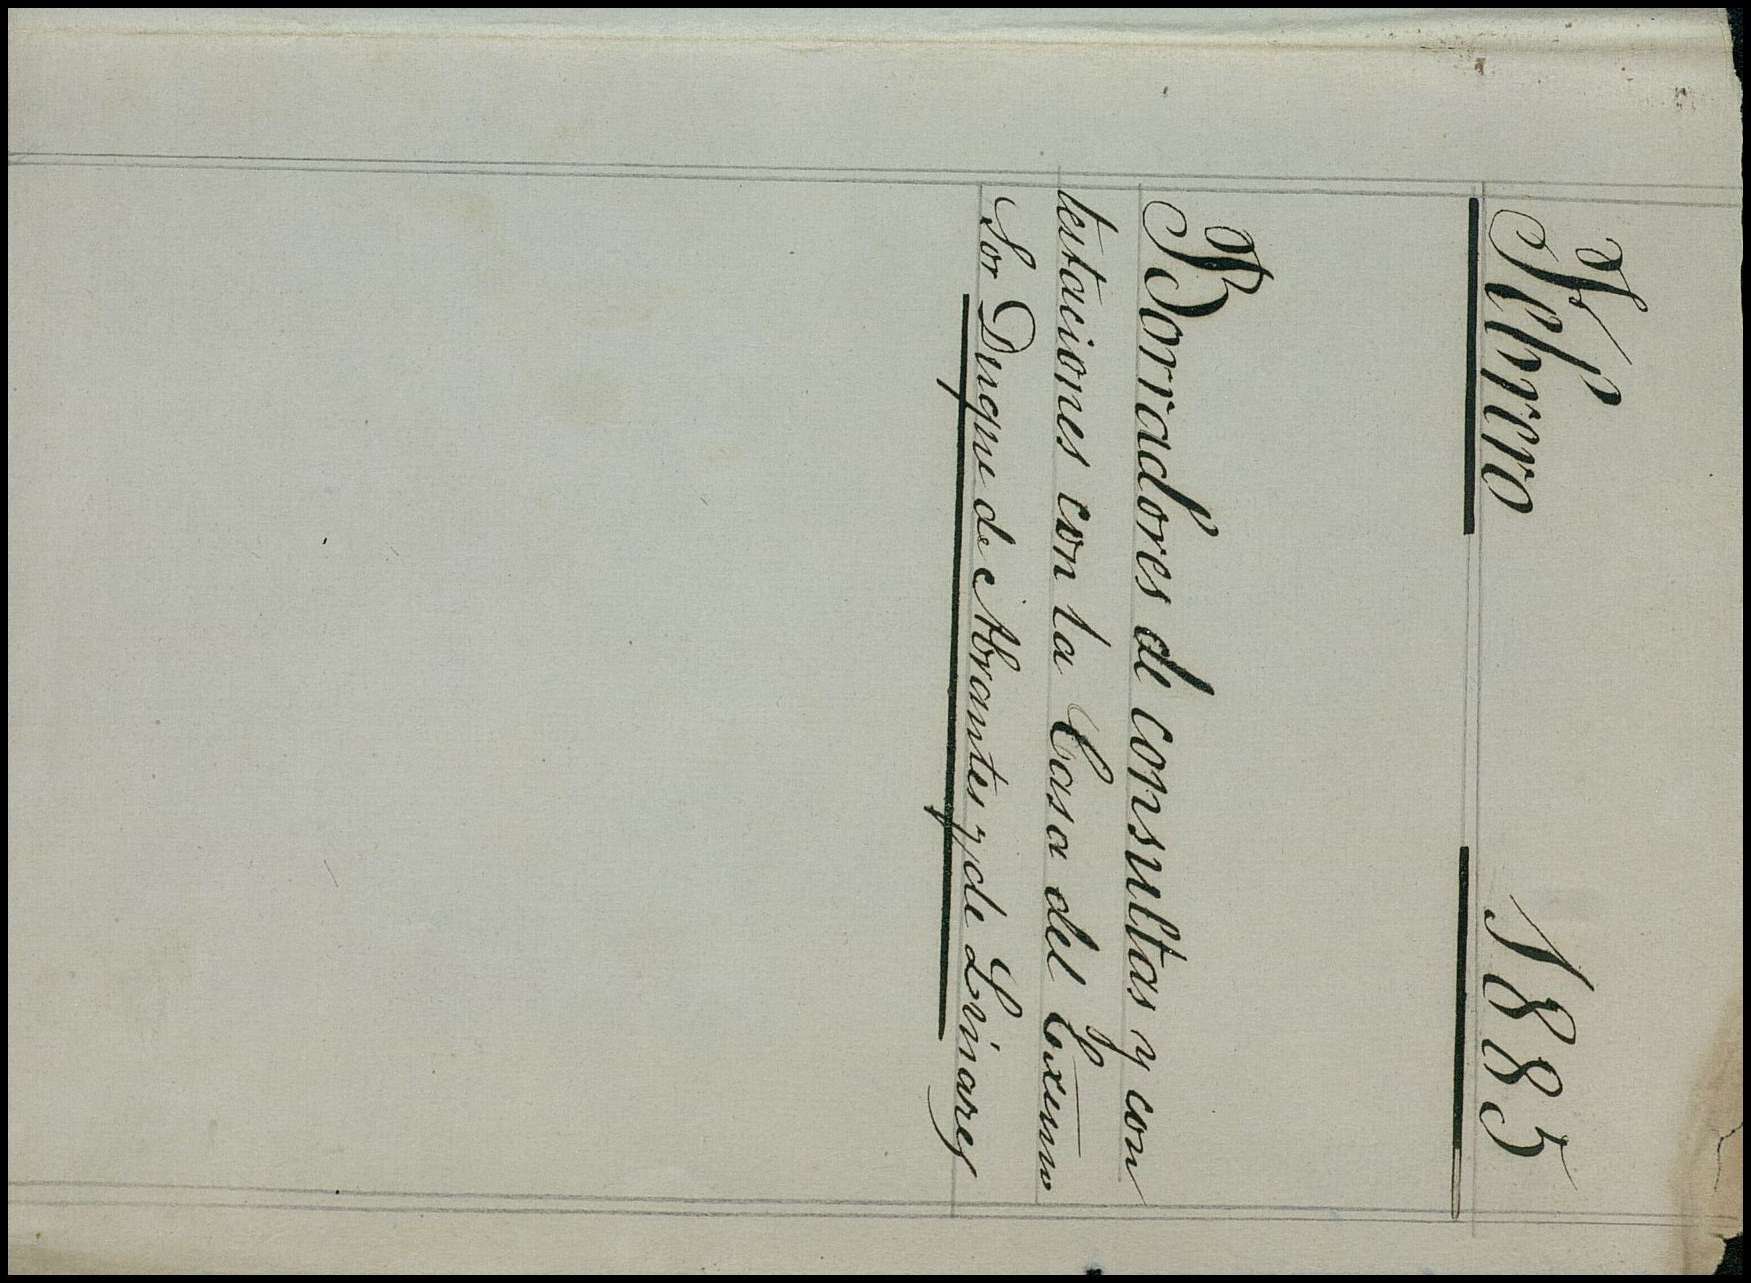 Febrero 1885
Borradores de consultas y con
testaciones con la Casa del Exmo
Sor Duque de Abrantes y de Linares